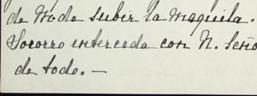 de Nada subir la maquila.
Socorro interceda con N. Seño
de todo. —